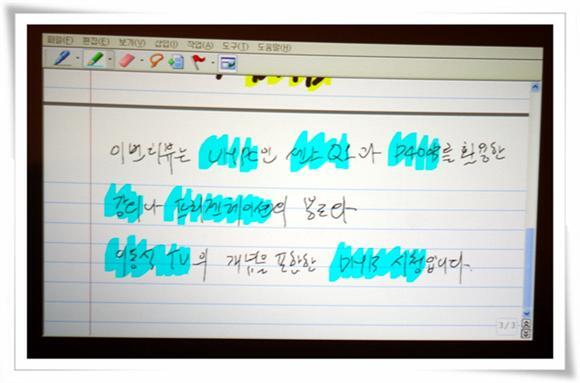 파일(F) 편집(E) 보기(V) 삽입(I) 작업(A) 도구(T) 도움말(H)
이번 리뷰는 UMPC인 센스 Q1과 를 활용한
강의나 프리젠테이션의 용도와
이동식 TV의 개념을 포함한 시청입니다.
3/3